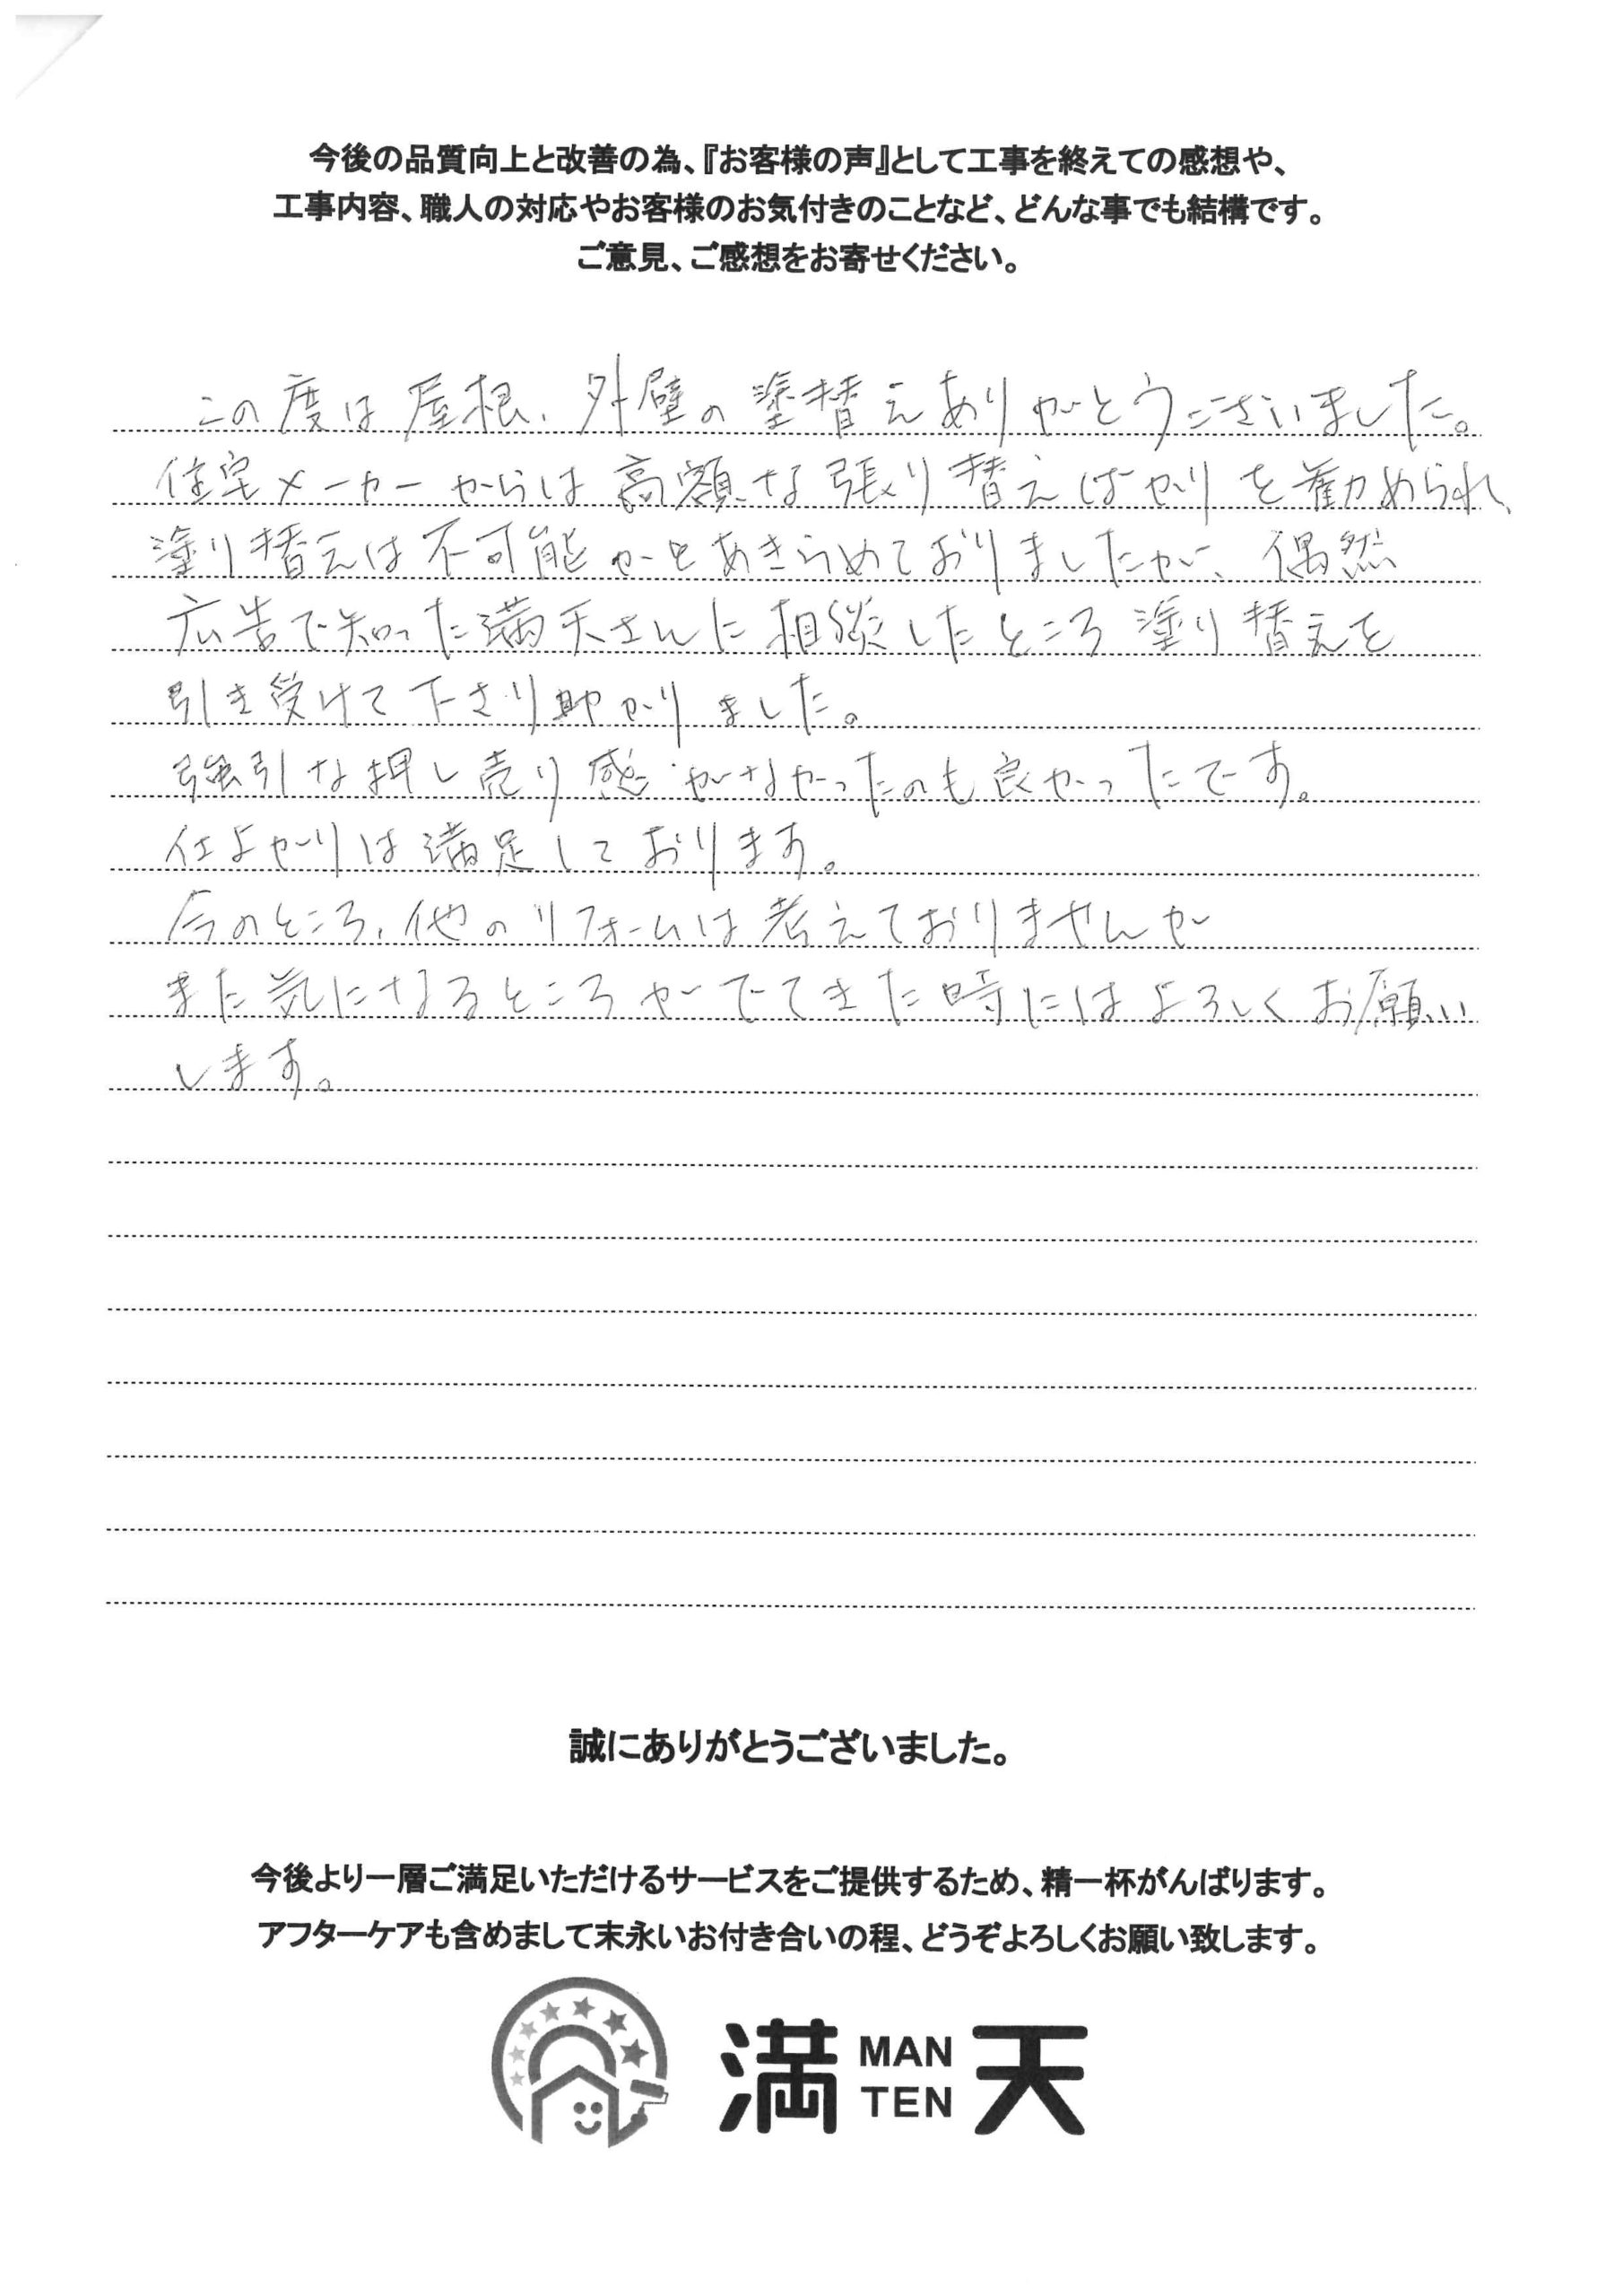 今後の品質向上と改善の為、『お客様の声』として工事を終えての感想や、
工事内容、職人の対応やお客様のお気付きのことなど、どんな事でも結構です。
ご意見、ご感想をお寄せください。
この度は屋根、外壁の塗替えありがとうございました。
住宅メーカーからは高額な張り替えばかりを勧められ、
塗り替えは不可能かとあきらめておりましたが、偶然
広告で知った満天さんに相談したところ塗り替えを
引き受けて下さり助かりました。
強引な押し売り感がなかったのも良かったです。
仕上がりは満足しております。
今のところ、他のリフォームは考えておりませんが
また気になるところがでてきた時にはよろしくお願い
します。
誠にありがとうございました。
今後より一層ご満足いただけるサービスをご提供するため、精一杯がんばります。
アフターケアも含めまして末永いお付き合いの程、どうぞよろしくお願い致します。
満 MAN TEN 天